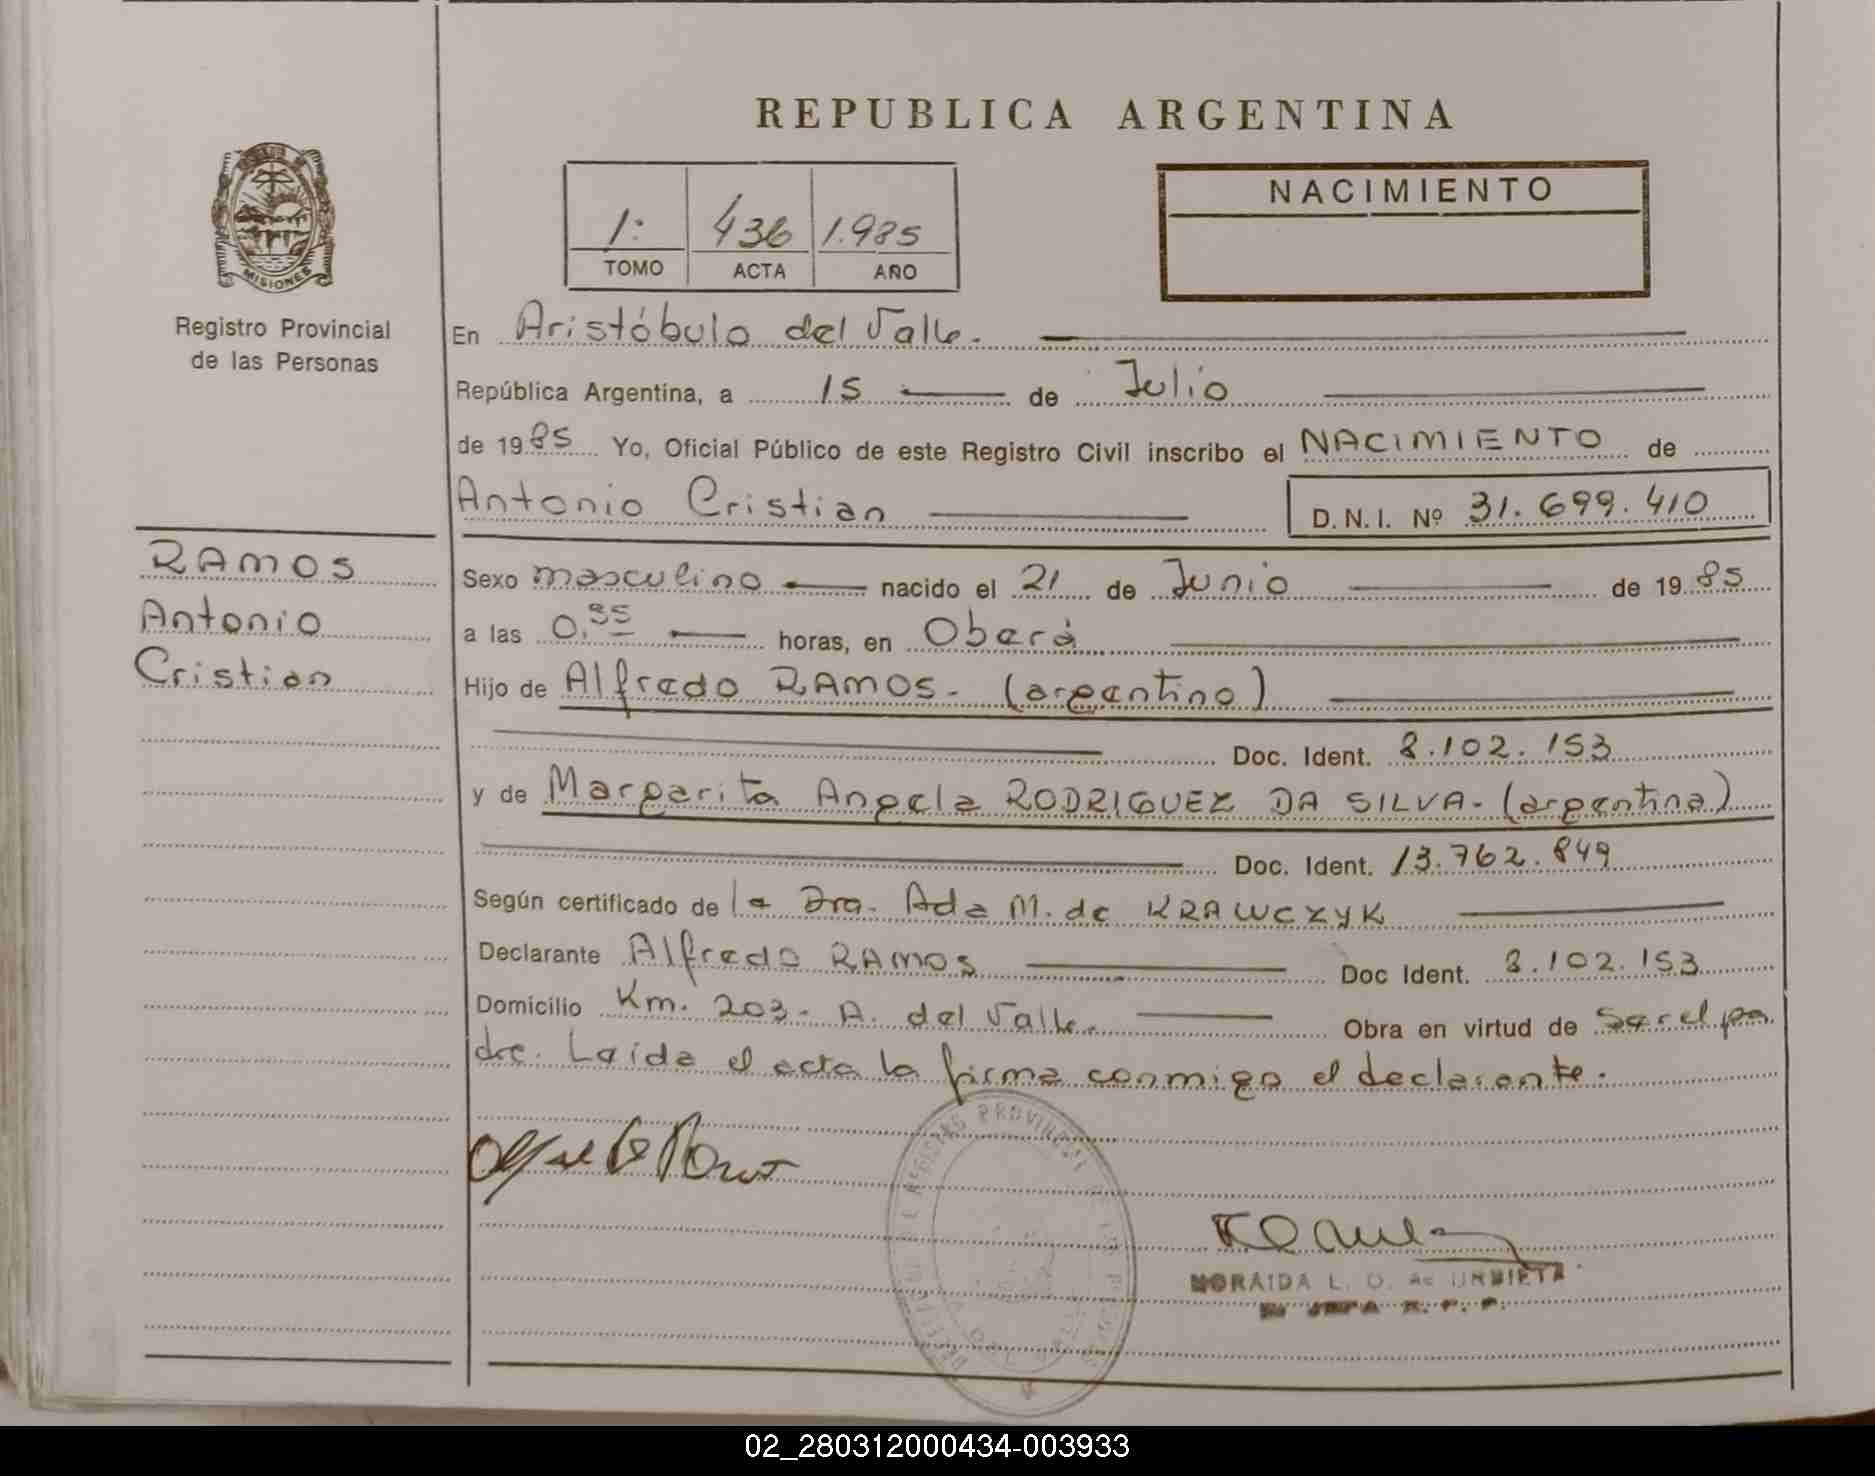 REPUBLICA ARGENTINA
MISIONES
Registro Provincial
de las Personas
1: 436 1.985
TOMO ACTA AÑO
NACIMIENTO
En Aristóbulo del Valle.
República Argentina, a 15 de Julio
de 1985 Yo, Oficial Público de este Registro Civil inscribo el NACIMIENTO de
Antonio Cristian D.N.I. Nº 31.699.410
RAMOS
Antonio
Cristian
Sexo masculino nacido el 21 de Junio de 1985
a las 0. horas, en Oberá
Hijo de Alfredo RAMOS. (argentino)
Doc. Ident. 8.102.153
y de Margarita Angela RODRIGUEZ DA SILVA. (argentina)
Doc. Ident. 13.762.849
Según certificado de la Dra. Ada M. de KRAWCZYK
Declarante Alfredo RAMOS Doc Ident. 8.102.153
Domicilio Km. 203. A. del Valle. Obra en virtud de Ser el pa
dre. Leída el acta la firma conmigo el declarante.
REGISTRO PROVINCIAL
NORAIDA L. O. de URBIETA
JEFA R. P. P.
02_280312000434-003933